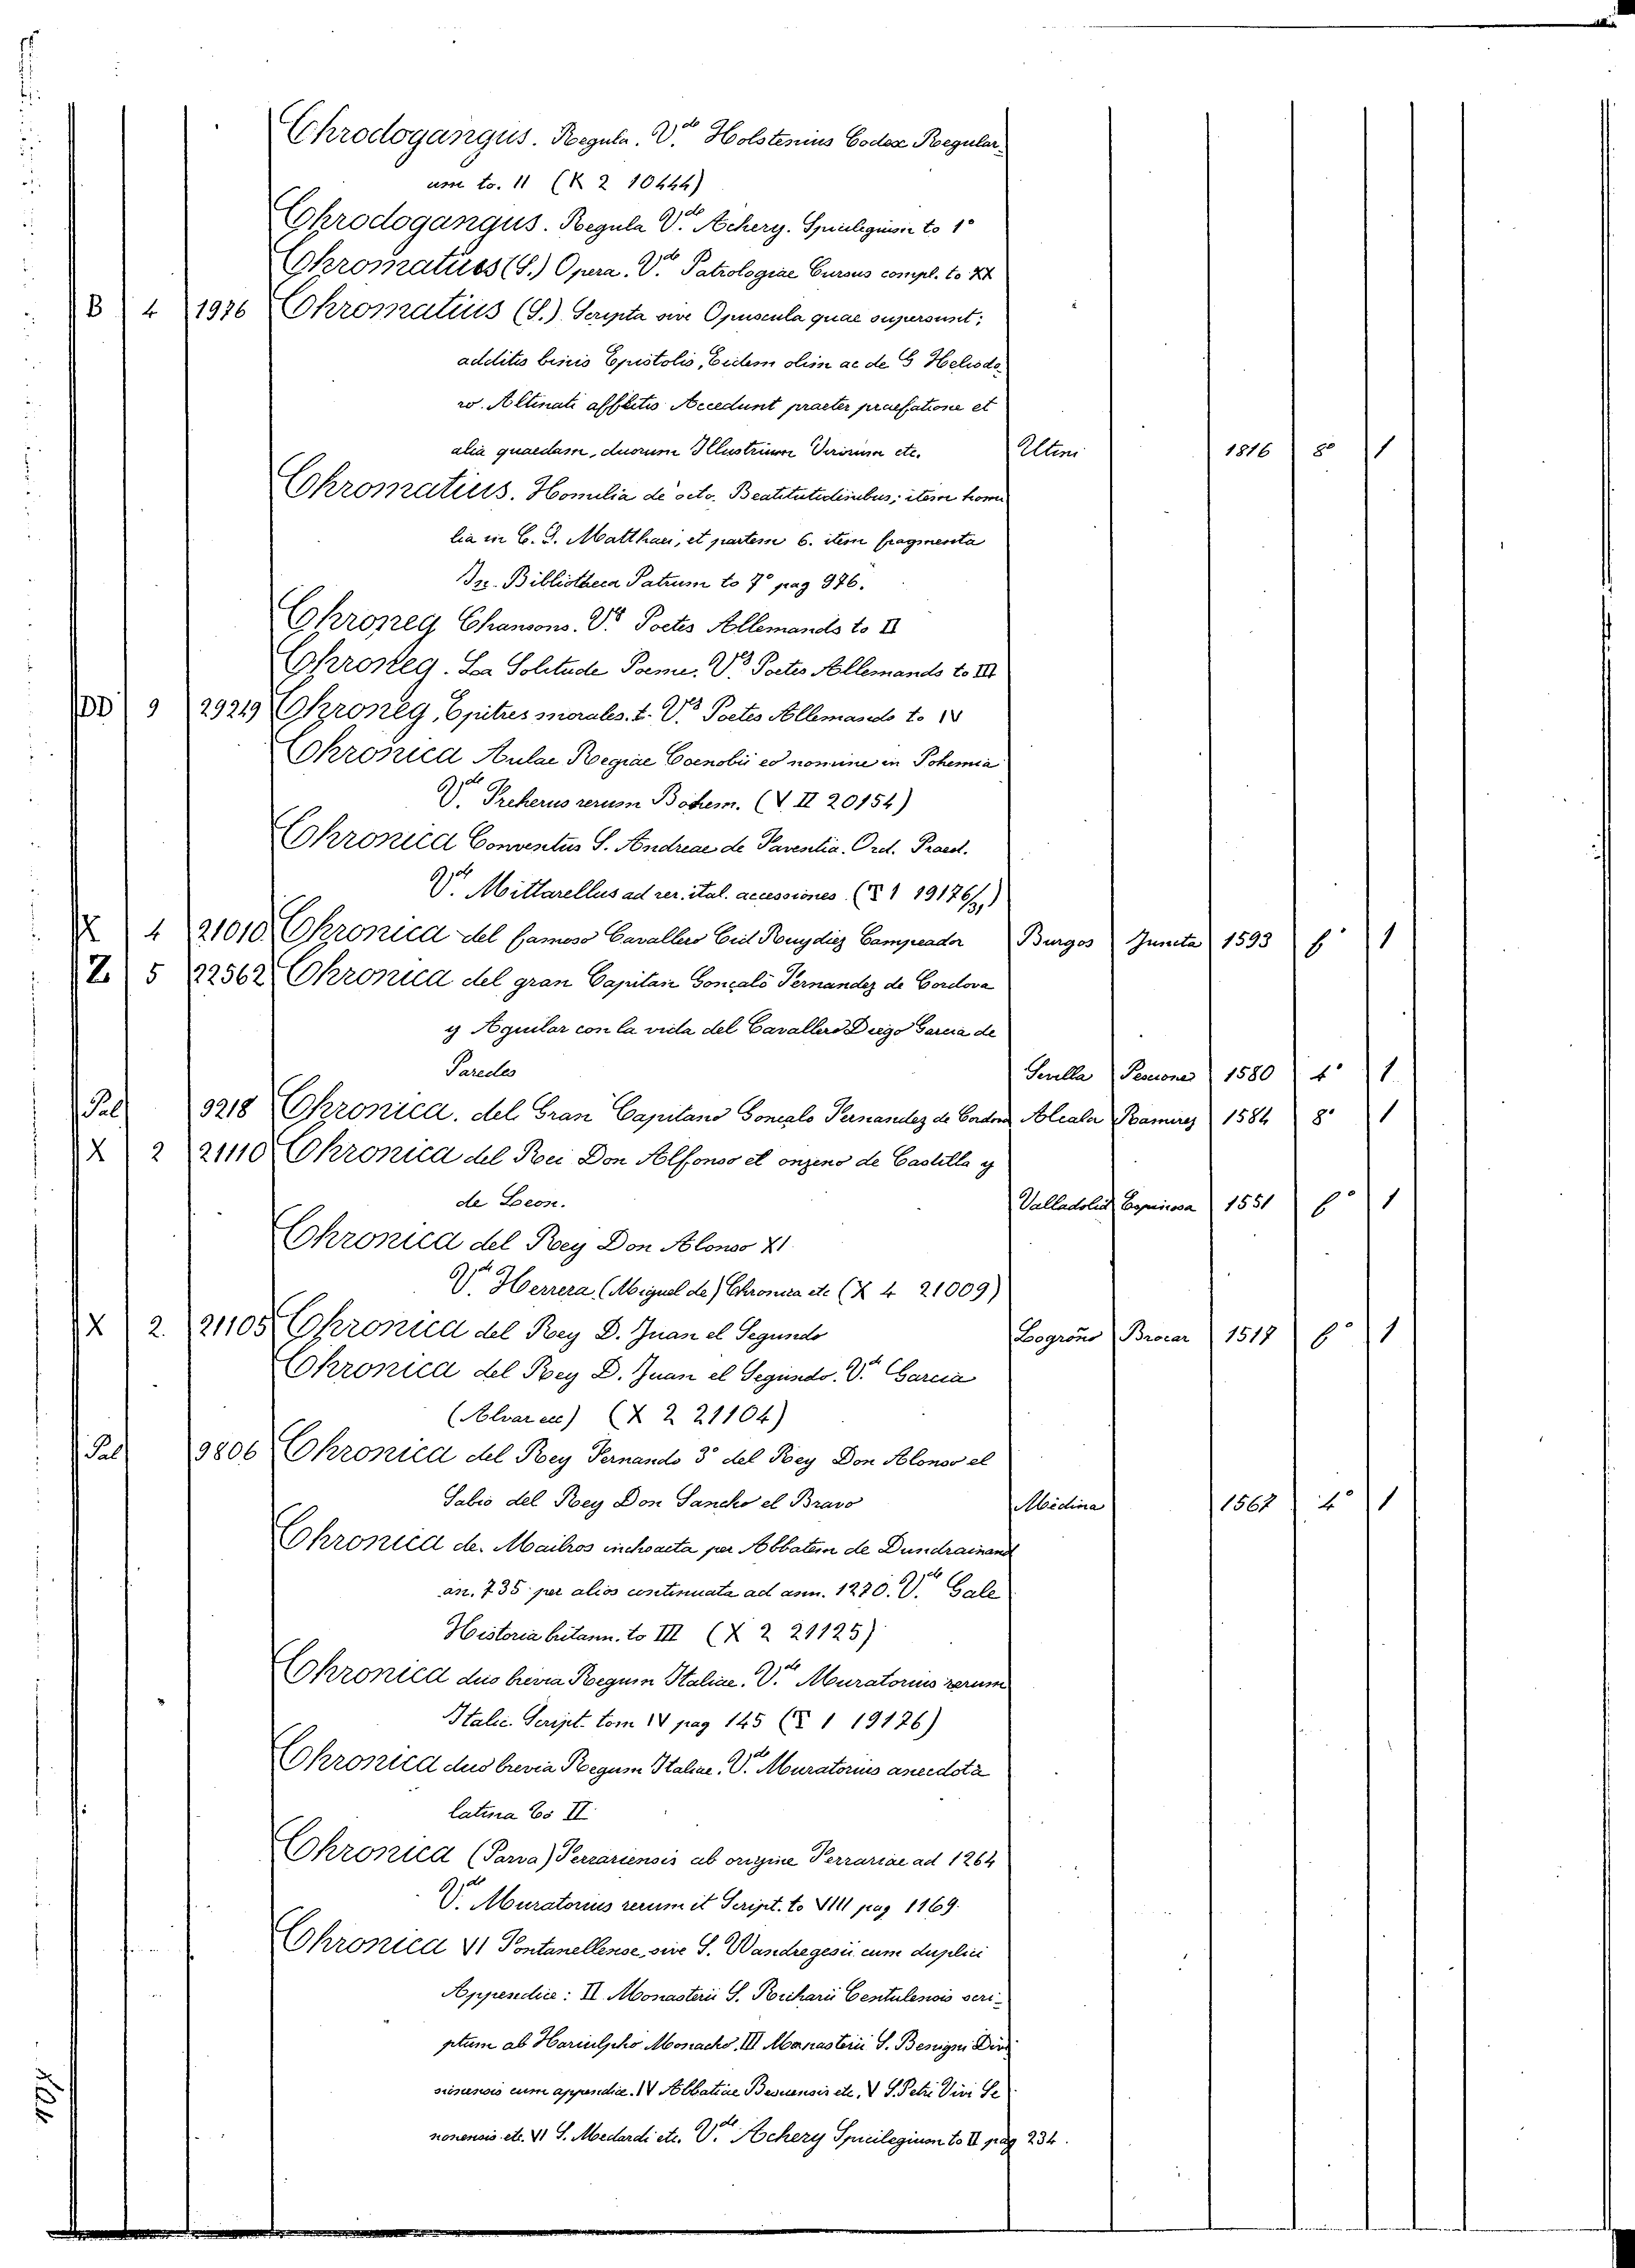 Chrodogangus. Regula. V.de Holstenius Codex Regular-
um to. 11 (K 2 10444)
Chrodogangus. Regula V.de Achery. Spicilegium to 1º
Chromatius (S.) Opera. V.de Patrologiae Cursus compl. to XX
B 4 1976 Chromatius (S.) Scripta sive Opuscula quae supersunt;
additis binis Epistolis, Eidem olim ac de S Heliodo
ro Altinati Accedunt praeter praefatione et
alia quaedam, duorum Illustrium Virorum etc. Utini 1816 8º 1
Chromatius. Homilia de octo Beatitutidinibus; item homi
lia in C. S. Matthaei, et partem 6. item fragmenta
In Bibliotheca Patrum to 7º pag 976.
Chroneg Chansons. V.de Poetes Allemands to II
Chroneg. La Solitude Poeme. V.de Poetes Allemands to III
DD 9 29219 Chroneg, Epitres morales. t. V.de Poetes Allemands to IV
Chronica Aulae Regiae Coenobii eo nomine in Bohemia
V.de Freherus rerum Bohem. (V II 20154)
Chronica Conventus S. Andreae de Faventia. Ord. Praed.
V.de Mittarellus ad rer. ital. accessiones (T 1 19176/3)
X 4 21010 Chronica del famoso Cavallero Cid Ruydiez Campeador Burgos Juncta 1593 fº 1
Z 5 22562 Chronica del gran Capitan Gonçalo Fernandez de Cordova
y Aguilar con la vida del Cavallero Diego Garcia de
Paredes Sevilla Pescione 1580 4º 1
Pal 9218 Chronica. del Gran Capitano Gonçalo Fernandez de Cordova Alcala Ramirez 1584 8º 1
X 2 21110 Chronica del Rei Don Alfonso el onzeno de Castilla y
de Leon. Valladolid Espinosa 1551 fº 1
Chronica del Rey Don Alonso XI
V.de Herrera (Miguel de) Chronica etc (X 4 21009)
X 2. 21105 Chronica del Rey D. Juan el Segundo Logroño Brocar 1517 fº 1
Chronica del Rey D. Juan el Segundo. V.de Garcia
(Alvar ecc) (X 2 21104)
Pal 9806 Chronica del Rey Fernando 3º del Rey Don Alonso el
Sabio del Rey Don Sancho el Bravo Medina 1567 4º 1
Chronica de Mailros inchoacta per Abbatem de Dundrainand
an. 735 per alios continuata ad ann. 1270. V.de Gale
Historia britann. to III (X 2 21125)
Chronica duo brevia Regum Italiae. V.de Muratorius rerum
Italic. Script. tom IV pag 145 (T 1 19176)
Chronica duo brevia Regum Italiae. V.de Muratorius anecdota
latina to II
Chronica (Parva) Ferrariensis ab origine Ferrariae ad 1264
V.de Muratorius rerum it Script. to VIII pag 1169.
Chronica VI Fontanellense, sive S. Wandregesii cum duplici
Appendice: II Monasterii S. Richarii Centulensis scri-
ptum ab Hariulpho Monacho. III Monasterii S. Benigni Divi
sionensis cum appendice. IV Abbatiae Besuensis etc. V S. Petri Vivi Se
nonensis etc. VI S. Medardi etc. V.de Achery Spicilegium to II pag 234.